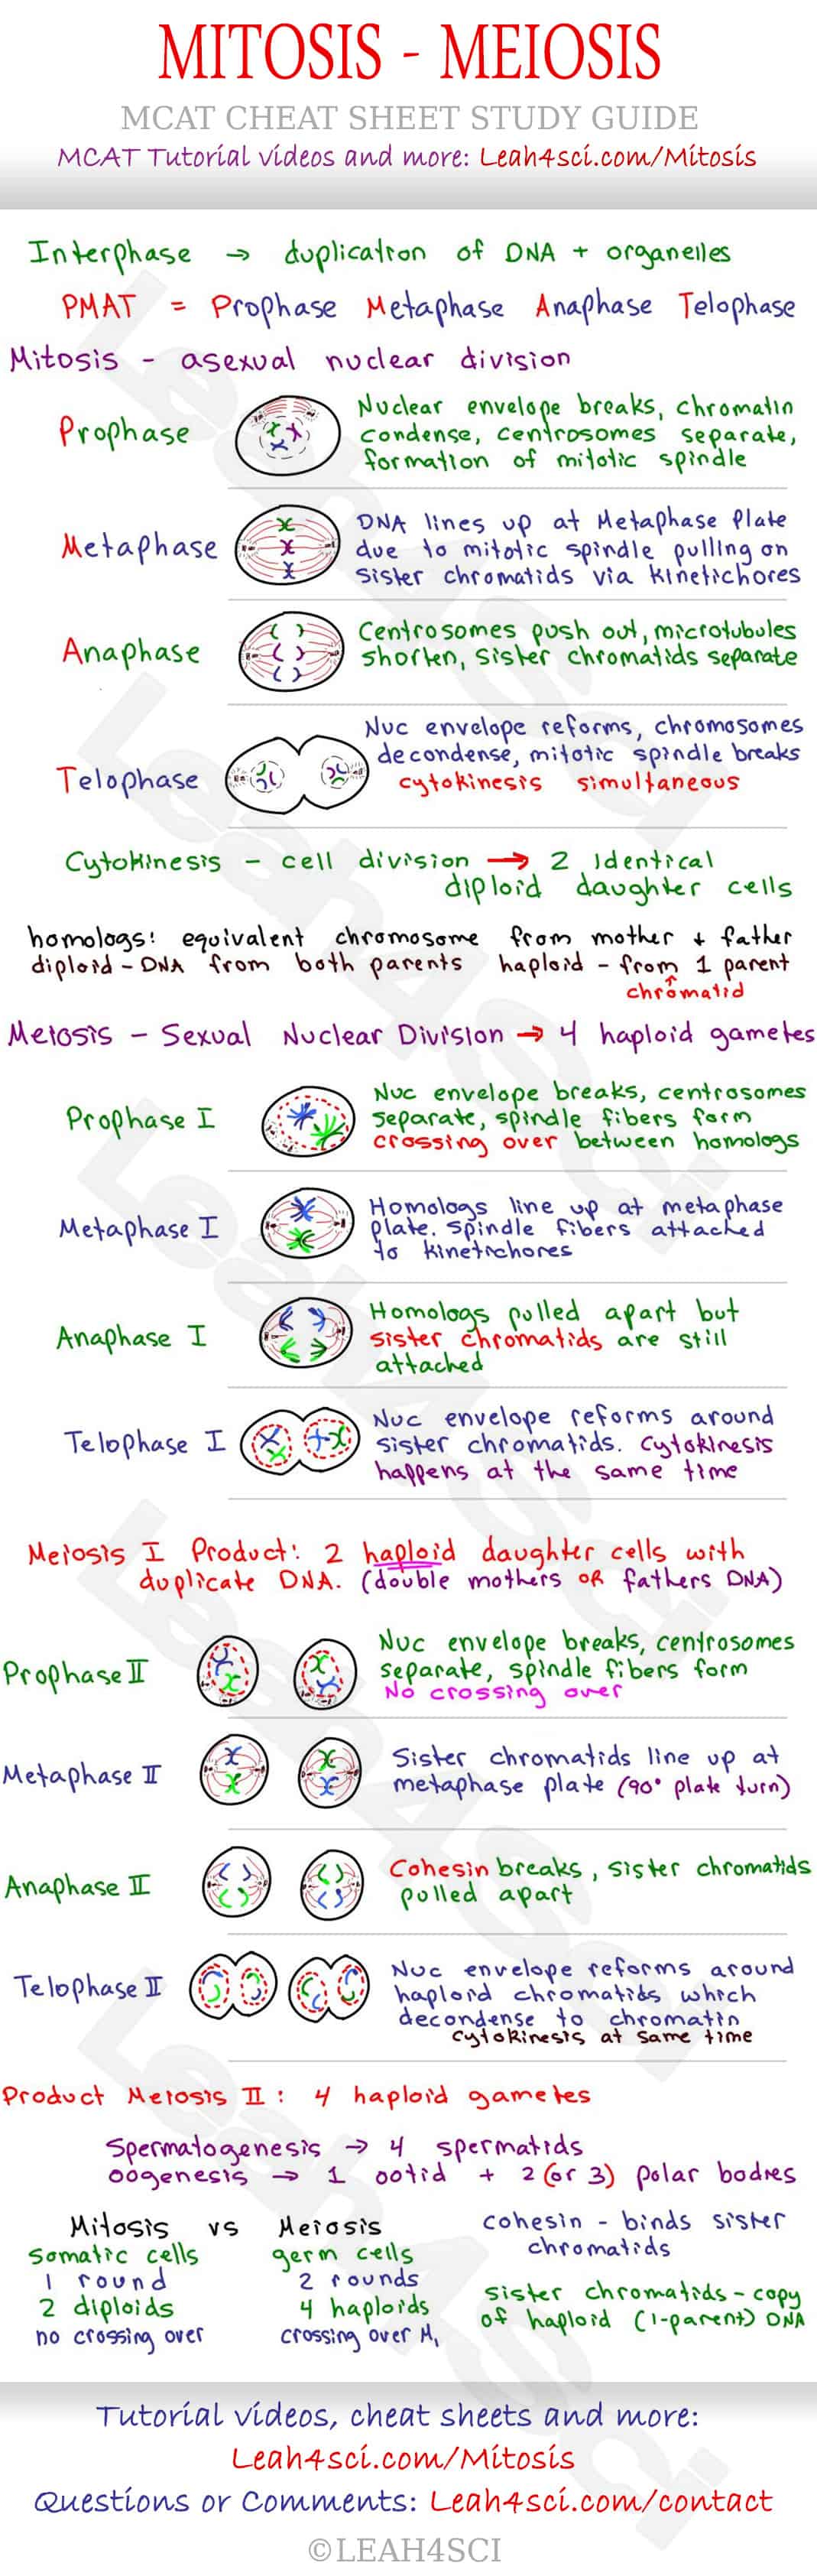 MITOSIS - MEIOSIS
MCAT CHEAT SHEET STUDY GUIDE
MCAT Tutorial videos and more: Leah4sci.com/Mitosis
Interphase → duplication of DNA + organelles
PMAT = Prophase Metaphase Anaphase Telophase
Mitosis - asexual nuclear division
Prophase
Nuclear envelope breaks, chromatin
condense, centrosomes separate,
formation of mitotic spindle
Metaphase
DNA lines up at Metaphase Plate
due to mitotic spindle pulling on
sister chromatids via kinetichores
Anaphase
Centrosomes push out, microtubules
shorten, sister chromatids separate
Telophase
Nuc envelope reforms, chromosomes
decondense, mitotic spindle breaks
cytokinesis simultaneous
Cytokinesis - cell division → 2 identical
diploid daughter cells
homologs: equivalent chromosome from mother + father
diploid - DNA from both parents haploid - from 1 parent
chromatid
Meiosis - Sexual Nuclear Division → 4 haploid gametes
Prophase I
Nuc envelope breaks, centrosomes
separate, spindle fibers form
crossing over between homologs
Metaphase I
Homologs line up at metaphase
plate. Spindle fibers attached
to kinetichores
Anaphase I
Homologs pulled apart but
sister chromatids are still
attached
Telophase I
Nuc envelope reforms around
sister chromatids. Cytokinesis
happens at the same time
Meiosis I Product: 2 haploid daughter cells with
duplicate DNA. (double mothers OR fathers DNA)
Prophase II
Nuc envelope breaks, centrosomes
separate, spindle fibers form
No crossing over
Metaphase II
Sister chromatids line up at
metaphase plate (90° plate turn)
Anaphase II
Cohesin breaks, sister chromatids
pulled apart
Telophase II
Nuc envelope reforms around
haploid chromatids which
decondense to chromatin
cytokinesis at same time
Product Meiosis II: 4 haploid gametes
Spermatogenesis → 4 spermatids
oogenesis → 1 ootid + 2 (or 3) polar bodies
Mitosis vs Meiosis
somatic cells germ cells
1 round 2 rounds
2 diploids 4 haploids
no crossing over crossing over M1
cohesin - binds sister
chromatids
sister chromatids - copy
of haploid (1-parent) DNA
Tutorial videos, cheat sheets and more:
Leah4sci.com/Mitosis
Questions or Comments: Leah4sci.com/contact
©LEAH4SCI
Leah4sci
Leah4sci
Leah4sci
Leah4sci
Leah4sci